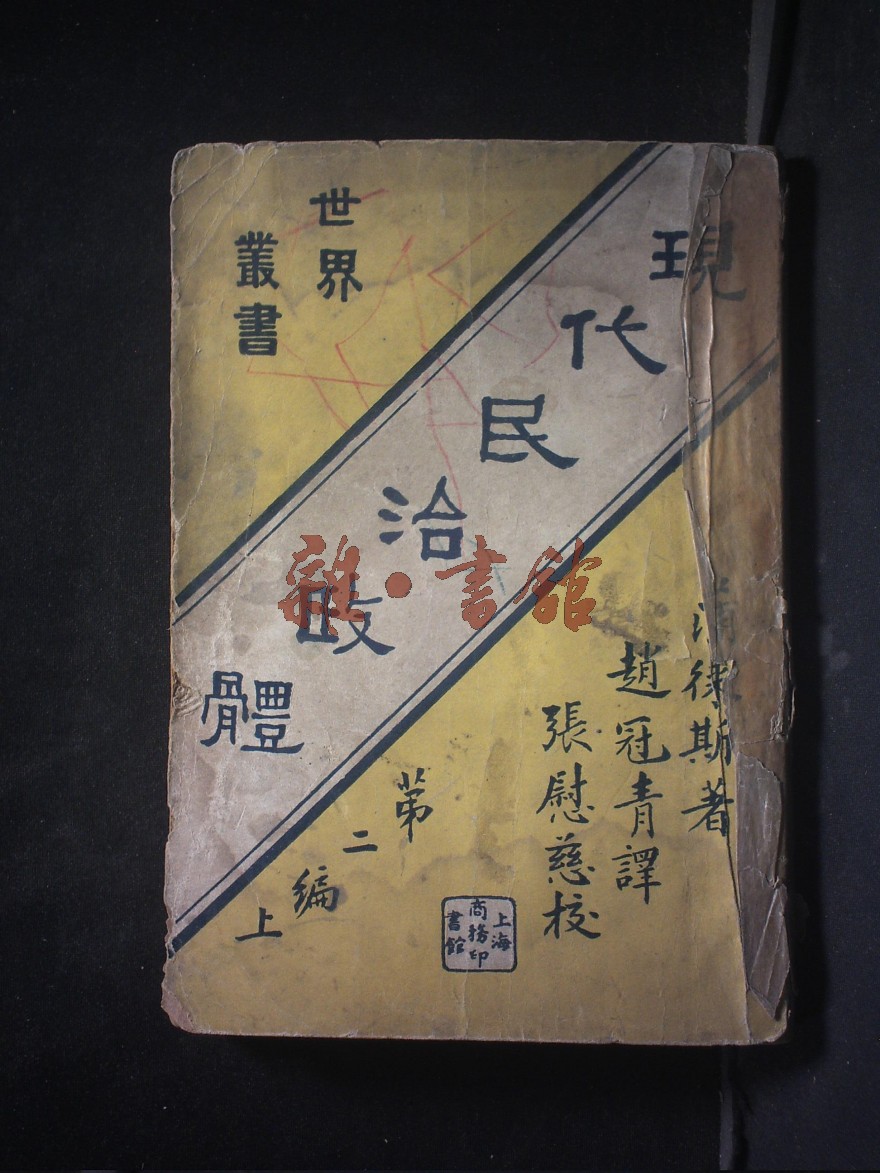 世界
叢書
現代民治政體
蒲徠斯著
趙冠青譯
張慰慈校
第二編上
上海
商務印
書館
雜·書館